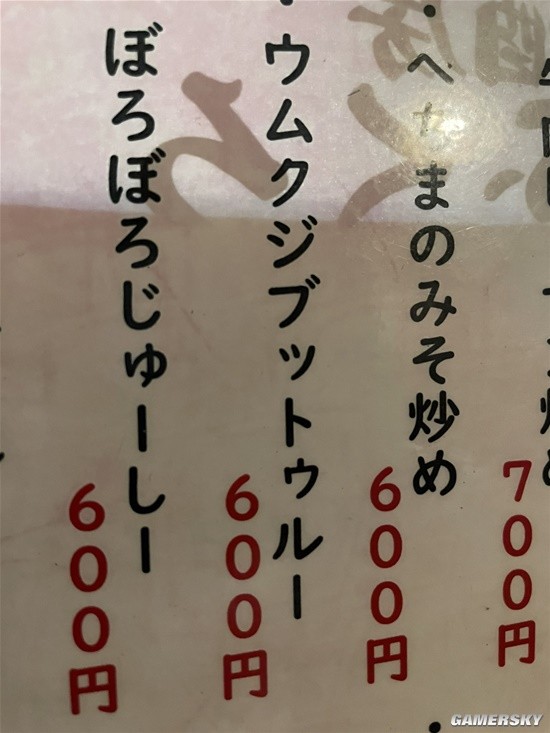 700円
・へちまのみそ炒め
600円
・ウムクジプットゥルー
600円
ぼろぼろじゅーしー
600円
GAMERSKY